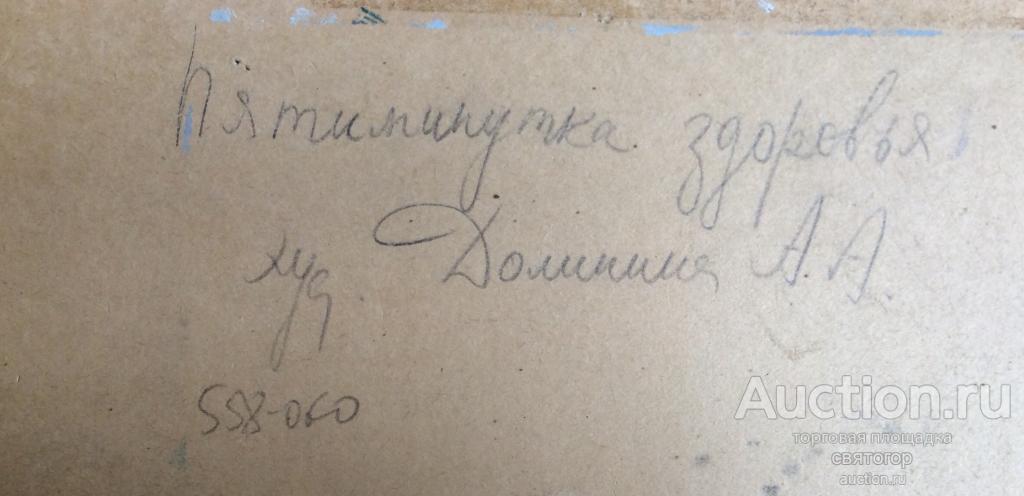 Пятиминутка здоровья
худ. Долинина А. А.
558-060
Auction.ru
торговая площадка
святогор
auction.ru